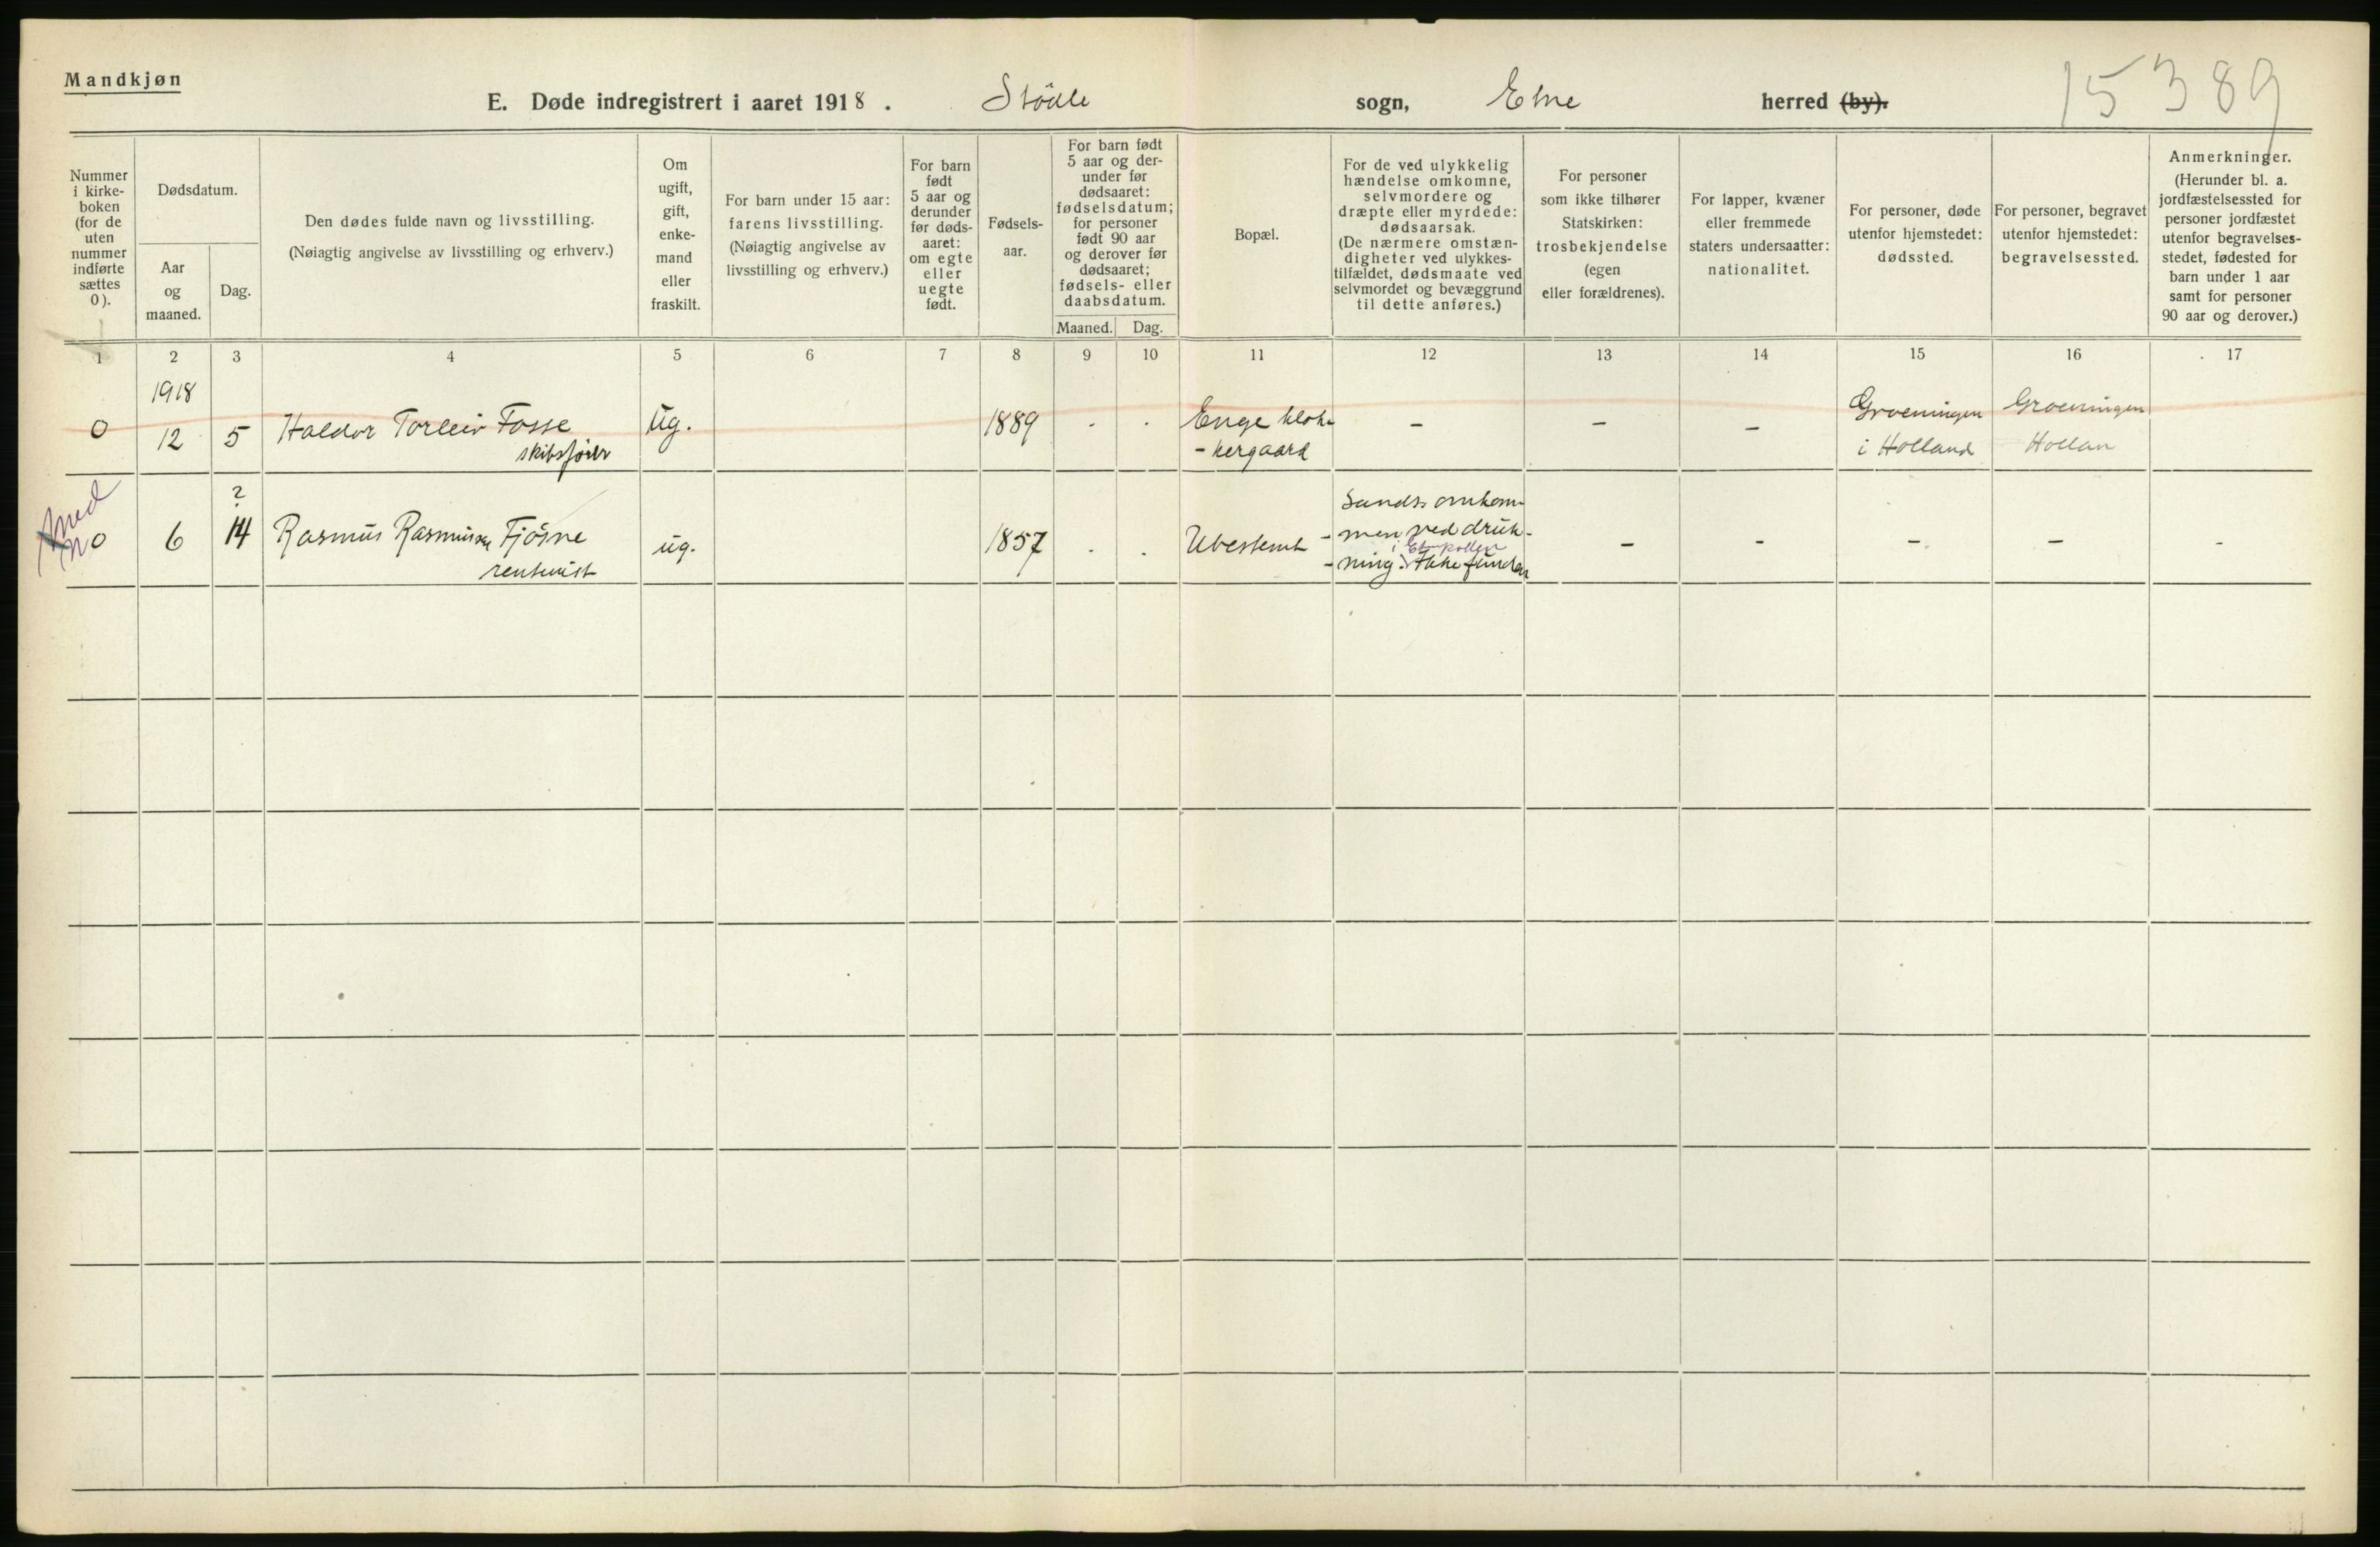 Mandkjøn
E. Døde indregistrert i aaret 1918. Stödle sogn, Etne herred (by).
15389
Nummer i kirke-boken (for de uten nummer indførte sættes 0).
Dødsdatum.
Aar og maaned.
Dag.
Den dødes fulde navn og livsstilling.
(Nøiagtig angivelse av livsstilling og erhverv.)
Om ugift, gift, enke-mand eller fraskilt.
For barn under 15 aar: farens livsstilling.
(Nøiagtig angivelse av livsstilling og erhverv.)
For barn født 5 aar og derunder før døds-aaret: om egte eller uegte født.
Fødsels-aar.
For barn født 5 aar og der-under før dødsaaret: fødselsdatum; for personer født 90 aar og derover før dødsaaret; fødsels- eller daabsdatum.
Maaned. Dag.
Bopæl.
For de ved ulykkelig hændelse omkomne, selvmordere og dræpte eller myrdede: dødsaarsak.
(De nærmere omstæn-digheter ved ulykkes-tilfældet, dødsmaate ved selvmordet og bevæggrund til dette anføres.)
For personer som ikke tilhører Statskirken: trosbekjendelse (egen eller forældrenes).
For lapper, kvæner eller fremmede staters undersaatter: nationalitet.
For personer, døde utenfor hjemstedet: dødssted.
For personer, begravet utenfor hjemstedet: begravelsessted.
Anmerkninger.
(Herunder bl. a. jordfæstelsessted for personer jordfæstet utenfor begravelses-stedet, fødested for barn under 1 aar samt for personer 90 aar og derover.)
1 2 3 4 5 6 7 8 9 10 11 12 13 14 15 16 17
1918
0 12 5 Haldor Torleiv Fosse Ug. 1889 - - Enge klok- - - - Groeningen Groeningen
skibsfører -kergaard i Holland Hollan
?
0 6 14 Rasmus Rasmussen Fjösne ug. 1857 - - Ubestemt Sands. omkom-
-men ved druk- - - - - -
rentenist i Etnepollen
-ning. Ikke funden